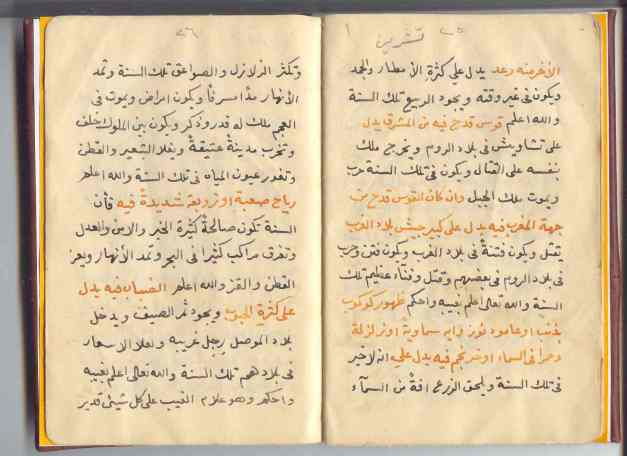 ٢٥
تشرين
١
الأخر منه رعد يدل علي كثرة الأمطار والجمد
ويكون في غير وقته ويجود الربيع تلك السنة
والله اعلم قوس قدح فيه من المشرق يدل
على تشاويش في بلاد الروم ويخرج ملك
بنفسه على القتال ويكون في تلك السنة حرب
ويموت ملك الجبل وان كان القوس قدح من
جهة المغرب فيه يدل على كبير جيش بلاد الغرب
يقتل ويكون فتنة في بلاد الغرب ويكون فتن وحرب
في بلاد الروم في بعضهم وقتل وفناء عظيم تلك
السنة والله تعالى اعلم بغيبه واحكم ظهور كوكب
بذنب او عامود نور وايه سماوية او زلزلة
وحمرا في السماء او نجم فيه يدل على انه لا خير
في تلك السنة ويلحق الزرع افة من السمآء
٢٦
وتكثر الزلازل والصواعق تلك السنة وتمد
الأنهار مدا مسرفا ويكون امراض ويموت في
العجم ملك له قدر وذكر ويكون بين الملوك خلف
وتخرب مدينة عتيقة ويغلا الشعير والقطن
وتغور عيون المياه في تلك السنة والله اعلم
رياح صعبة او زوبعة شديدة فيه فأن
السنة تكون صالحة كثيرة الخير والامن والعدل
وتغرق مراكب كثيرا في البحر وتمد الأنهار ويعز
القطن والقز والله اعلم الضباب فيه يدل
على كثرة الحبوب ويجود ثمر الصيف ويدخل
بلاد الموصل رجل غريبه ويغلا الاسعار
في بلادهم تلك السنة والله تعالى اعلم بغيبه
واحكم وهو علام الغيب على كل شيئ قدير